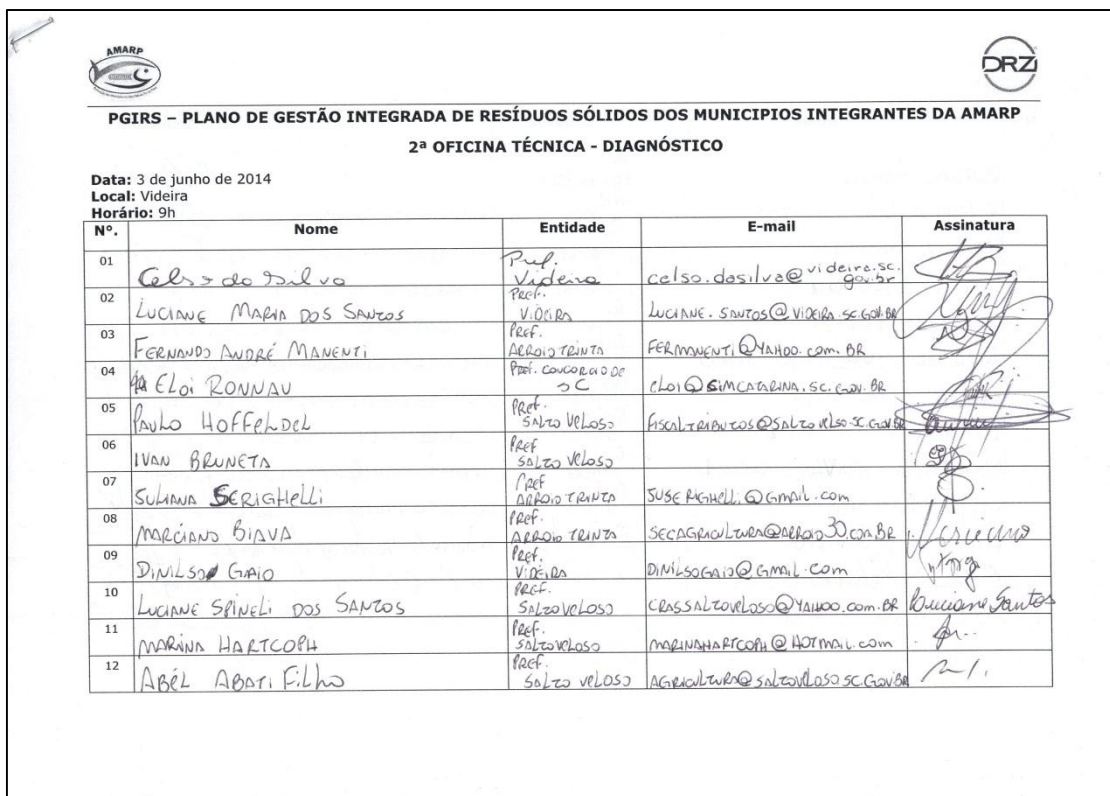 AMARP
DRZ
PGIRS – PLANO DE GESTÃO INTEGRADA DE RESÍDUOS SÓLIDOS DOS MUNICIPIOS INTEGRANTES DA AMARP
2ª OFICINA TÉCNICA - DIAGNÓSTICO
Data: 3 de junho de 2014
Local: Videira
Horário: 9h
Nº. Nome Entidade E-mail Assinatura
01 Celso da Silva Pref. Videira celso.dasilva@videira.sc.gov.br
02 LUCIANE MARIA DOS SANTOS PREF. VIDEIRA LUCIANE.SANTOS@VIDEIRA.SC.GOV.BR
03 FERNANDO ANDRÉ MANENTI PREF. ARROIO TRINTA FERMANENTI@YAHOO.COM.BR
04 ELOI RONNAU SC ELOI@SIMCATARINA.SC.GOV.BR
05 PAULO HOFFELDEL PREF. SALTO VELOSO FISCALTRIBUTOS@SALTOVELSO.SC.GOV.BR
06 IVAN BRUNETA PREF SALTO VELOSO
07 SULIANA SERIGHELLI PREF ARROIO TRINTA SUSERIGHELLI@GMAIL.COM
08 MARCIANO BIAVA PREF. ARROIO TRINTA SECAGRICULTURA@ARROIO30.COM.BR Marciano
09 DINILSO GAIO PREF. VIDEIRA DINILSOGAIO@GMAIL.COM
10 LUCIANE SPINELI DOS SANTOS PREF. SALTO VELOSO CRASSALTOVELOSO@YAHOO.COM.BR Luciane Santos
11 MARINA HARTCOPH PREF. SALTO VELOSO MARINAHARTCOPH@HOTMAIL.COM
12 ABÉL ABATI FILHO PREF. SALTO VELOSO AGRICULTURA@SALTOVELOSO.SC.GOV.BR